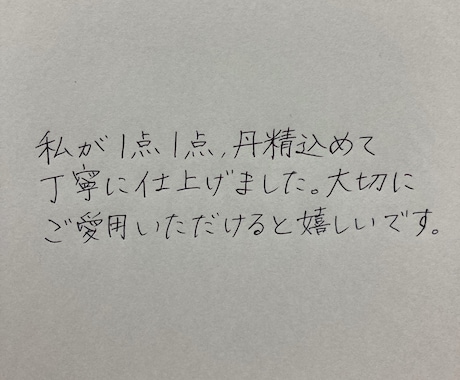 私が1点1点,丹精込めて
丁寧に仕上げました。大切に
ご愛用いただけると嬉しいです。